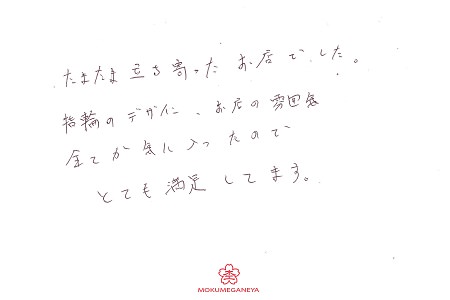 たまたま立ち寄ったお店でした。
指輪のデザイン、お店の雰囲気
全てが気に入ったので
とても満足してます。
MOKUMEGANEYA